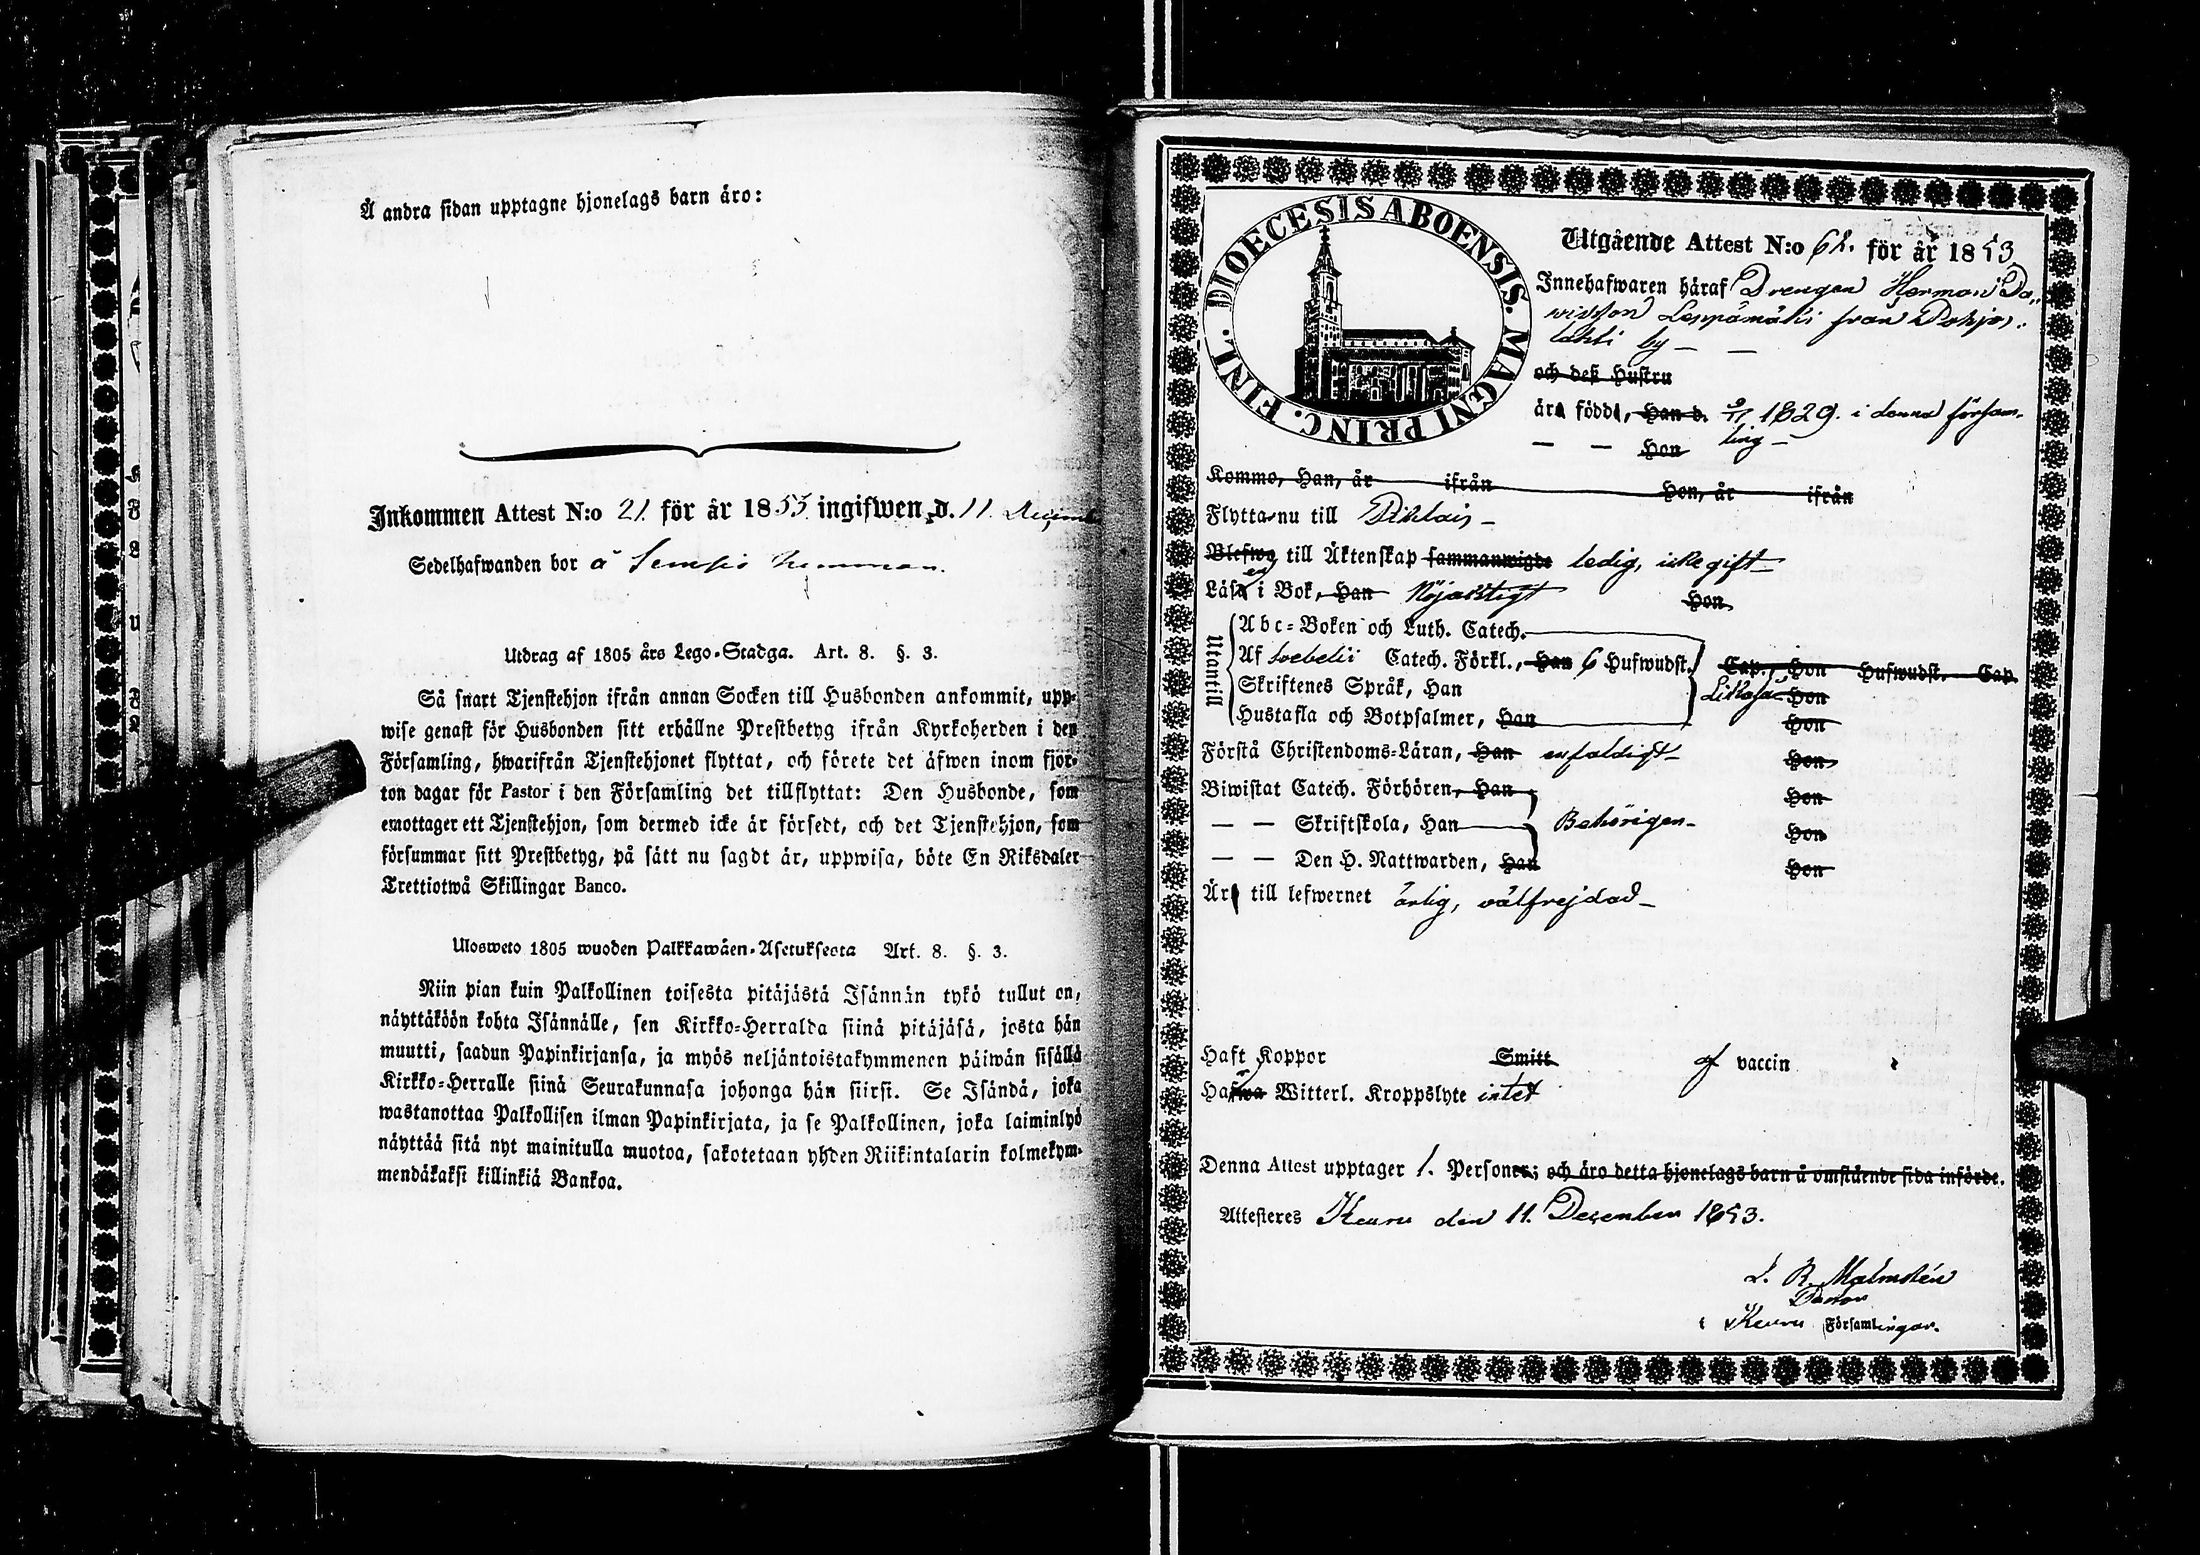 Å andra sidan upptagne hjonelags barn äro:
Inkommen Attest N:o 21. för år 1853. ingifwen d. 11. Decemb
Sedelhafwanden bor å hemman.
Utdrag af 1805 års Lego-Stadga. Art. 8. §. 3.
Så snart Tjenstehjon ifrån annan Socken till Husbonden ankommit, upp-
wise genast för Husbonden sitt erhållne Prestbetyg ifrån Kyrkoherden i den
Församling, hwarifrån Tjenstehjonet flyttat, och förete det äfwen inom fjor-
ton dagar för Pastor i den Församling det tillflyttat: Den Husbonde, som
emottager ett Tjenstehjon, som dermed icke är försedt, och det Tjenstehjon, som
försummar sitt Prestbetyg, på sätt nu sagdt är, uppwisa, böte En Riksdaler
Trettiotwå Skillingar Banco.
Ulosweto 1805 wuoden Palkkawäen-Asetuksesta Art. 8. §. 3.
Niin pian kuin Palkollinen toisesta pitäjästä Isännän tykö tullut on,
näyttäköön kohta Isännälle, sen Kirkko-Herralda siinä pitäjäsä, josta hän
muutti, saadun Papinkirjansa, ja myös neljäntoistakymmenen päiwän sisällä
Kirkko-Herralle siinä Seurakunnasa johonga hän siirsi. Se Isändä, joka
wastanottaa Palkollisen ilman Papinkirjata, ja se Palkollinen, joka laiminlyö
näyttää sitä nyt mainitulla muotoa, sakotetaan yhden Riikintalarin kolmekym-
mendäkaksi killinkiä Bankoa.
DIOECESIS ABOENSIS. MAGNI PRINC. FINL.
Utgående Attest N:o 62. för år 1853
Innehafwaren häraf Drengen Herman Da-
vidsson Leppämäki från Pohjos-
lahti by
och deß Hustru
är född, Han d. 1829. i denna försam-
Hon ling
Kommo, Han, år ifrån Hon, år ifrån
Flytta nu till Pihlais
Blefwo till Äktenskap sammanwigde ledig, icke gift
Läser i Bok, Han Nöjaktigt Hon
Utantill
Abc-Boken och Luth. Catech.
Af Svebelii Catech. Förkl., Han 6 Hufwudst. Cap., Hon Hufwudst. Cap.
Skriftenes Språk, Han Likaså Hon
Hustafla och Botpsalmer, Han Hon
Förstå Christendoms-Läran, Han enfaldigt Hon
Biwistat Catech. Förhören, Han Hon
— — Skriftskola, Han Behörigen Hon
— — Den H. Nattwarden, Han Hon
Är till lefwernet ärlig, välfrejdad
Haft Koppor Smitt af vaccin
Hafwa Witterl. Kroppslyte intet
Denna Attest upptager 1. Personer; och äro detta hjonelags barn å omstående sida införde.
Attesteres Keuru den 11. December 1853.
L. R. Malmstén
Pastor
i Keuru Församlingar.